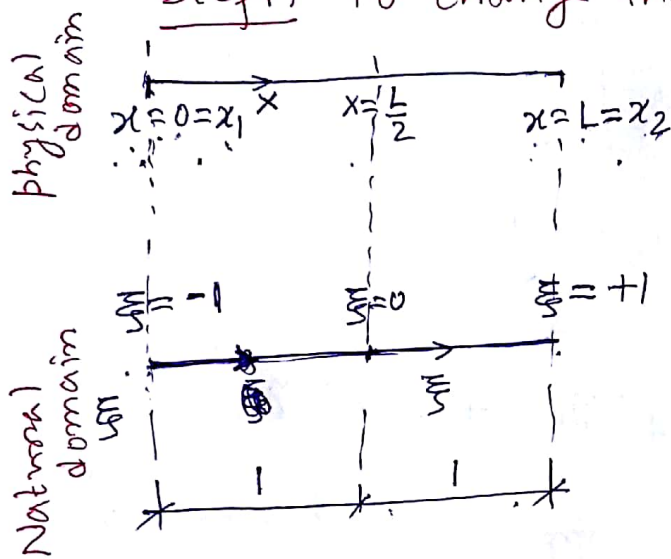 to change
physical domain
x
x=0=x₁
x=L/2
x=L=x₂
ξ=-1
ξ=0
ξ=+1
Natural domain
ξ
ξ
1
1